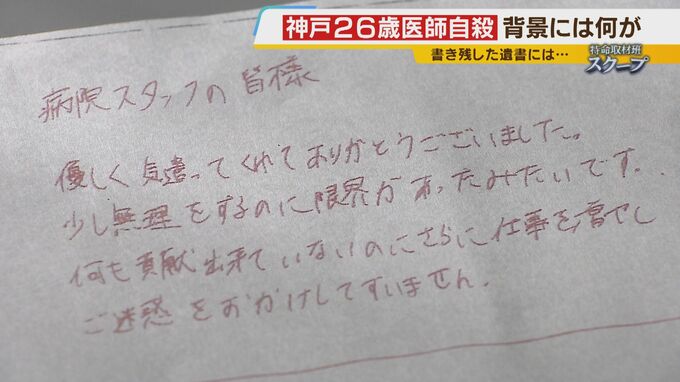 神戸26歳医師自殺 背景には何が
書き残した遺書には…
特命取材班
スクープ
病院スタッフの皆様
優しく気遣ってくれてありがとうございました。
少し無理をするのに限界があったみたいです.
何も貢献出来ていないのにさらに仕事を増やし
ご迷惑をおかけしてすいません.